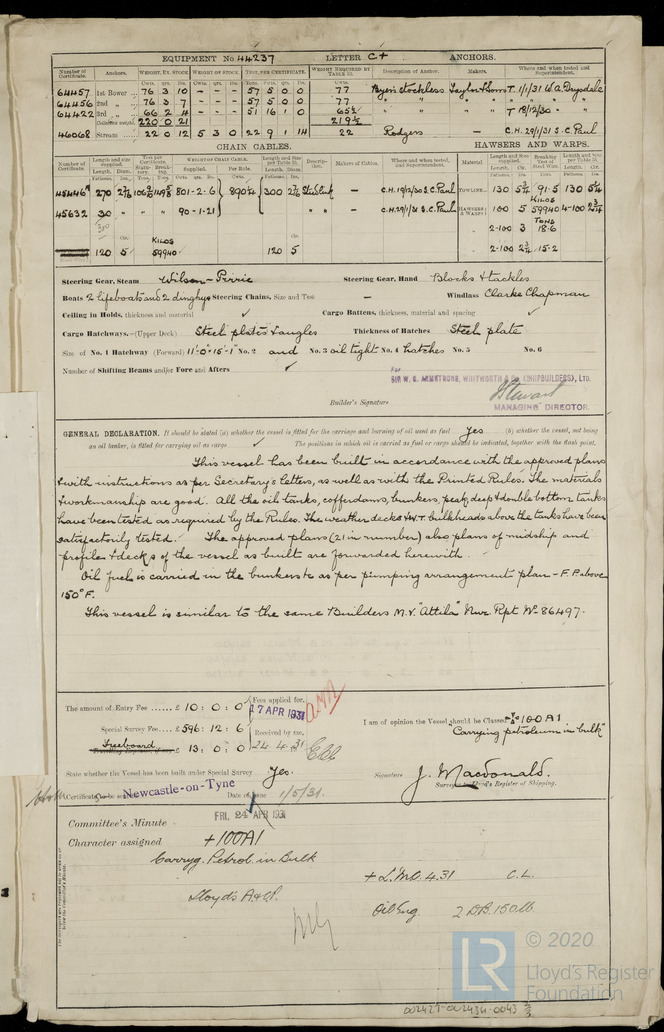 EQUIPMENT No 44237 LETTER C+ ANCHORS.
Number of Certificate. Anchors. WEIGHT, EX. STOCK WEIGHT OF STOCK TEST, PER CERTIFICATE. WEIGHT REQUIRED BY TABLE 31. Description of Anchor. Makers. Where and when tested and Superintendent.
64457 1st Bower 76 3 10 - - - 57 5 0 0 77 Byers Stockless Taylor & Sons T. 1/1/31 W.A. Drysdale
64456 2nd " 76 3 7 - - - 57 5 0 0 77 " " " " " "
64422 3rd " 66 2 4 - - - 51 16 1 0 65½ " " " T 18/12/30 " "
220 0 21 219½
46068 Stream 22 0 12 5 3 0 22 9 1 14 22 Rodgers — C.H. 29/1/31 S.C. Paul
CHAIN CABLES. HAWSERS AND WARPS.
45446 270 2 7/16 801-2-6 890¼ 300 2 7/16 Stud link — C.H. 19/12/30 S.C. Paul TOWLINE 130 5¼ 91.5 130 5¼
45632 30 " " " 90-1-21 " " — C.H. 29/1/31 S.C. Paul HAWSERS & WARPS 100 5 KILOS 59940 4-100 2¾
300 2-100 3 TONS 18.6
120 5 KILOS 59940 120 5 2-100 2¾ 15.2
Steering Gear, Steam Wilson-Pirrie Steering Gear, Hand Blocks & tackles
Boats 2 lifeboats and 2 dinghys Steering Chains, Size and Test — Windlass Clarke Chapman
Ceiling in Holds, thickness and material ✓ Cargo Battens, thickness, material and spacing ✓
Cargo Hatchways.—(Upper Deck) Steel plates & angles Thickness of Hatches Steel plate
Size of No. 1 Hatchway (Forward) 11'-0" × 15'-1" No. 2 and No. 3 oil tight No. 4 hatches No. 5 No. 6
Number of Shifting Beams and/or Fore and Afters ✓
For
SIR W. G. ARMSTRONG, WHITWORTH & Co. (SHIPBUILDERS), LTD.
Builder's Signature
MANAGING DIRECTOR.
GENERAL DECLARATION. It should be stated (a) whether the vessel is fitted for the carriage and burning of oil used as fuel Yes (b) whether the vessel, not being
an oil tanker, is fitted for carrying oil as cargo ✓ The positions in which oil is carried as fuel or cargo should be indicated, together with the flash point.
This vessel has been built in accordance with the approved plans
& with instructions as per Secretary's letters, as well as with the Printed Rules. The materials
& workmanship are good. All the oil tanks, cofferdams, bunkers, peak, deep & double bottom tanks
have been tested as required by the Rules. The weather decks & W.T. bulkheads above the tanks have been
satisfactorily tested. The approved plans (21 in number) also plans of midship and
profile & decks of the vessel as built are forwarded herewith.
Oil fuel is carried in the bunkers &c as per pumping arrangement plan - F.P. above
150°F.
This vessel is similar to the same Builders M.V. "Attila" Nwc Rpt No 86497.
The amount of Entry Fee £ 10 : 0 : 0 Fees applied for,
17 APR 1931
Special Survey Fee £ 596 : 12 : 6 Received by me,
Freeboard £ 13 : 0 : 0 24.4.31
I am of opinion the Vessel should be Classed +100A1
"Carrying petroleum in bulk"
State whether the Vessel has been built under Special Survey Yes.
Signature J. Macdonald.
Surveyor to Lloyd's Register of Shipping.
Certificate to be sent to Newcastle-on-Tyne Date of issue 1/5/31.
Committee's Minute FRI. 24 APR 1931
Character assigned +100A1
Carryg. Petrol. in Bulk
+ L.M.C. 4.31 C.L.
Lloyd's A.&C.P.
Oil Eng 2 DB. 150lb.
LR
© 2020
Lloyd's Register
Foundation
002427-002434-0043 2/2